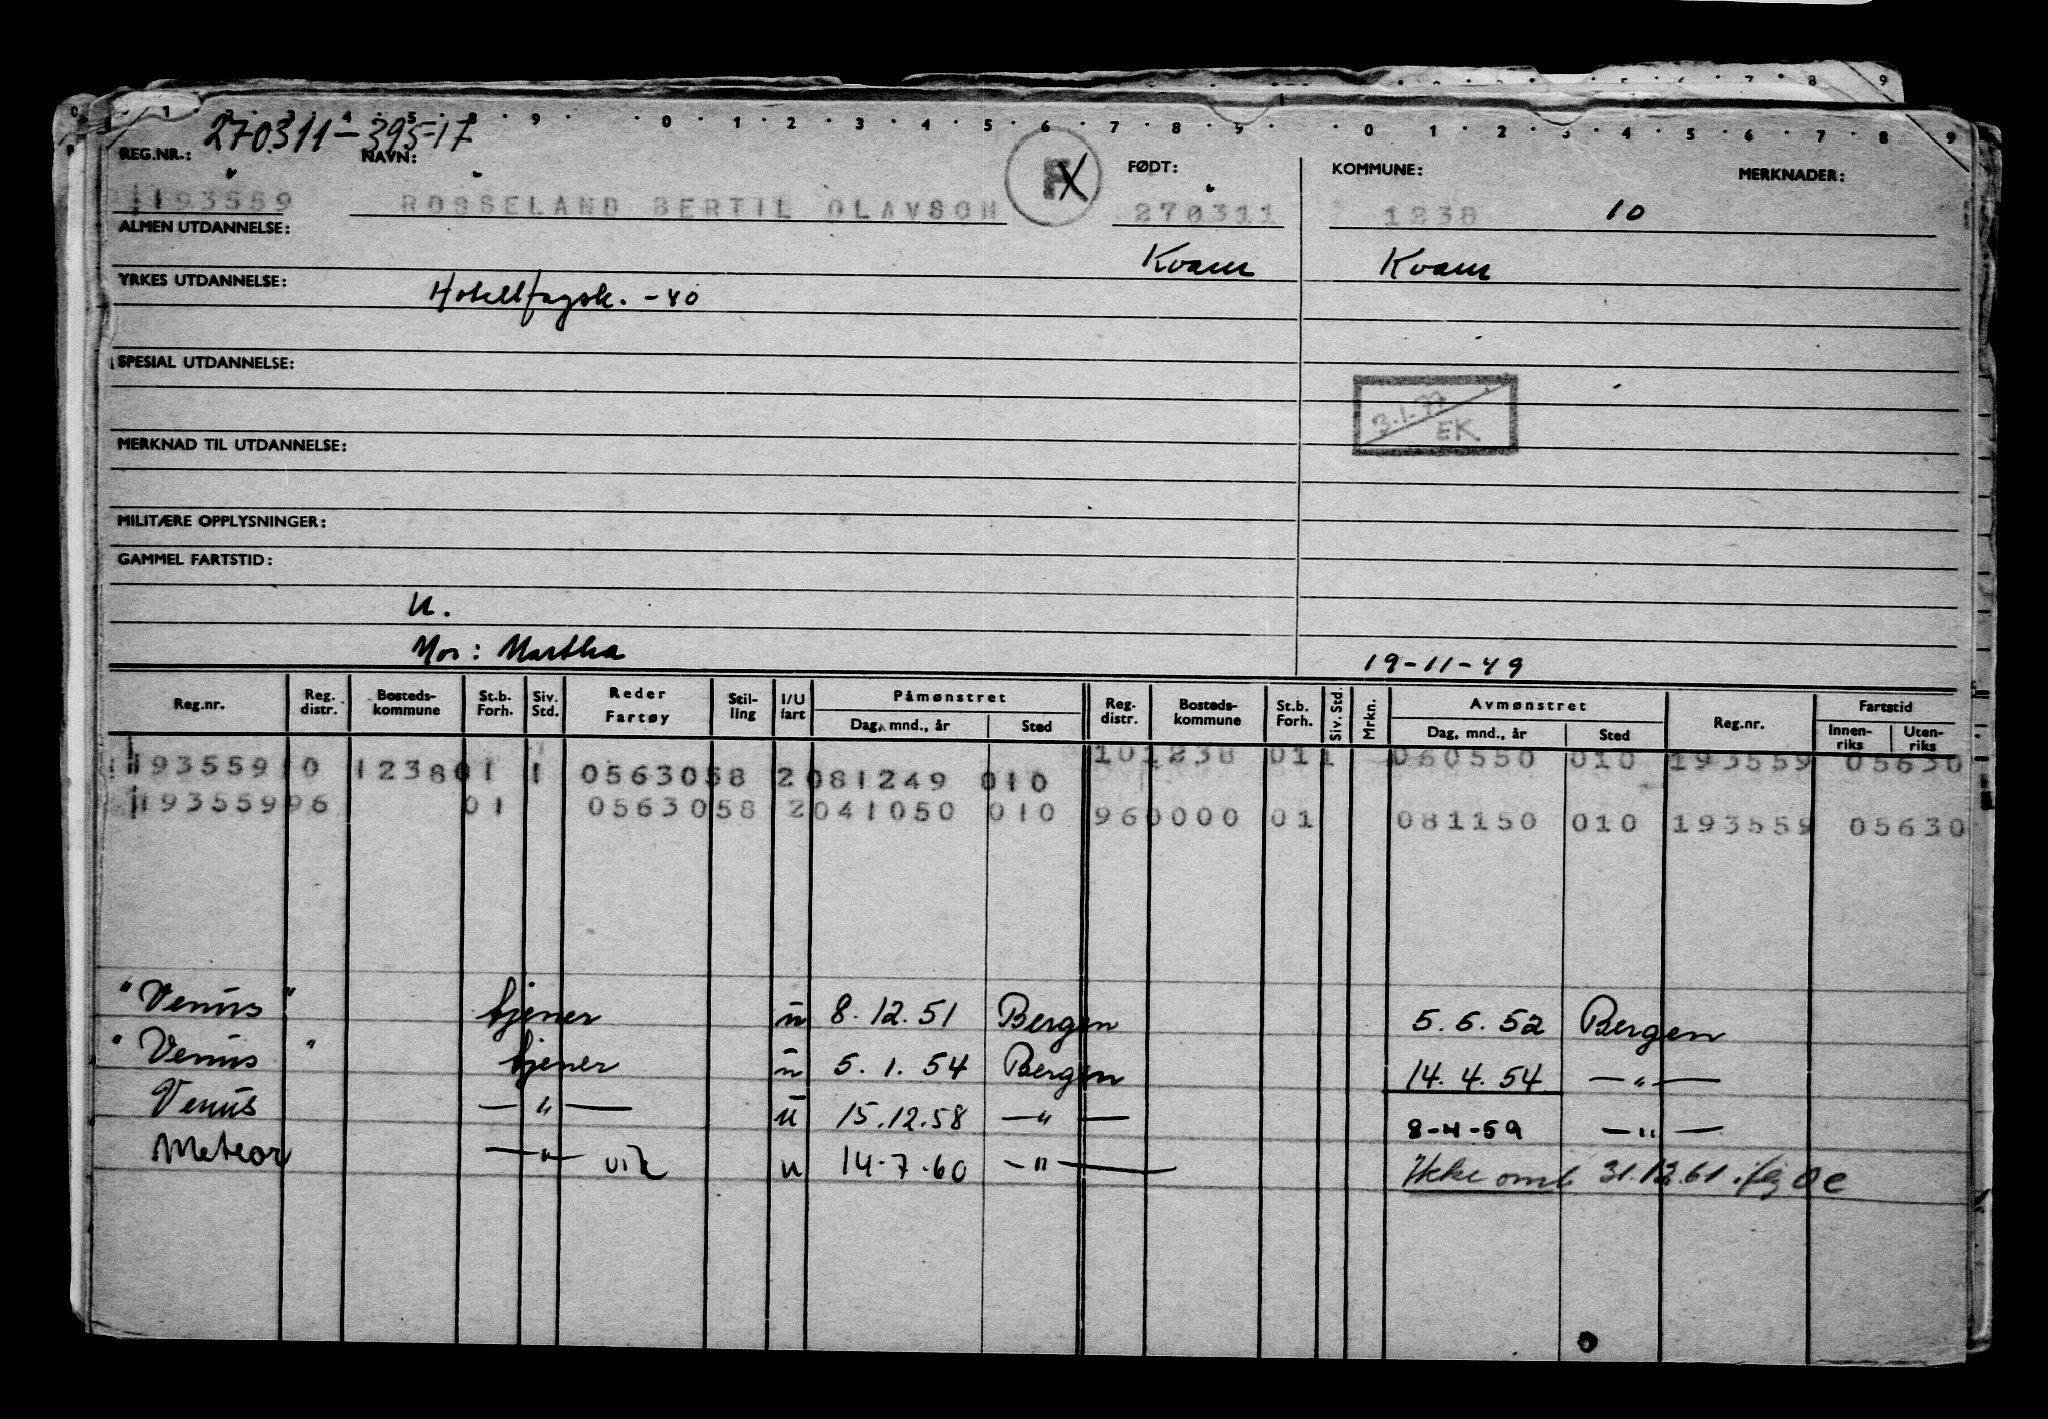 0 · 1 · 2 · 3 · 4 · 5 · 8 · 9 · · 0 · 1 · 2 · 3 · 4 · 5 · 6 · 7 · 8 · 9 · · 0 · 1 · 2 · 3 · 4 · 5 · 6 · 7 · 8 · 9
270311-39517
REG.NR.: NAVN: FØDT: KOMMUNE: MERKNADER:
193559 ROSSELAND BERTIL OLAVSON F X 270311 1238 10
ALMEN UTDANNELSE: Kvam Kvam
YRKES UTDANNELSE: Hotellfagsk. -40
SPESIAL UTDANNELSE:
3.1.77 EK
MERKNAD TIL UTDANNELSE:
MILITÆRE OPPLYSNINGER:
GAMMEL FARTSTID:
U.
Mor: Martha 19-11-49
Reg.nr. Reg. distr. Bosteds-kommune St.b. Forh. Siv. Std. Reder Fartøy Stil-ling I/U fart Påmønstret Dag, mnd., år Sted Reg. distr. Bosteds-kommune St.b. Forh. Siv. Std. Mrkn. Avmønstret Dag, mnd., år Sted Reg.nr. Fartstid Innen-riks Uten-riks
193559 10 1238 01 1 0563058 2 081249 010 10 1238 01 1 060550 010 193559 05630
193559 96 01 0563058 2 041050 010 96 0000 01 081150 010 193559 05630
"Venus" tjener u 8.12.51 Bergen 5.6.52 Bergen
"Venus" tjener u 5.1.54 Bergen 14.4.54 —"—
Venus —"— u 15.12.58 —"— 8-4-59 —"—
Meteor —"— vik u 14.7.60 —"— Ikke omb 31.12.61.